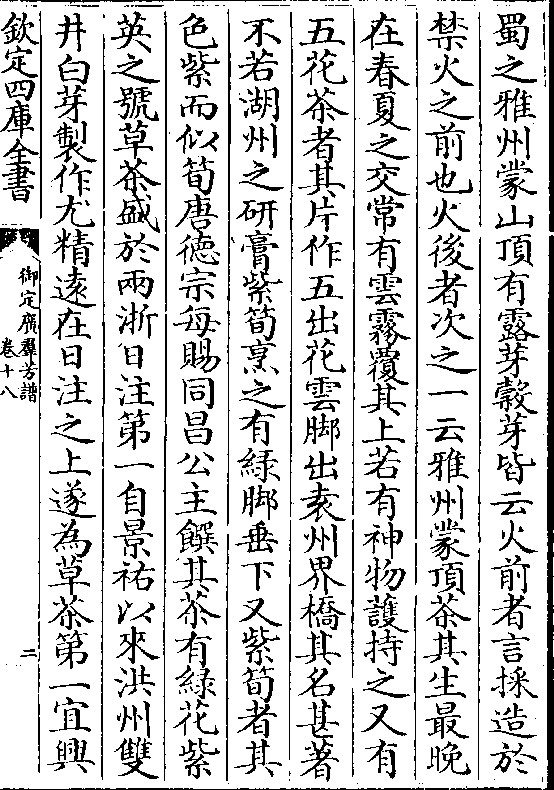 蜀之雅州蒙山頂有露芽糓芽皆云火前者言採造於
禁火之前也火後者次之一云雅州蒙頂茶其生最晚
在春夏之交常有雲霧覆其上若有神物護持之又有
五花茶者其片作五出花雲脚出袁州界橋其名甚著
不若湖州之研膏紫筍烹之有綠脚垂下又紫筍者其
色紫而似筍唐德宗每賜同昌公主饌其茶有綠花紫
英之號草茶盛於兩浙日注第一自景祐以來洪州雙
井白芽製作尤精遠在日注之上遂為草茶第一宜興
欽定四庫全書
御定廣羣芳譜
卷十八
二